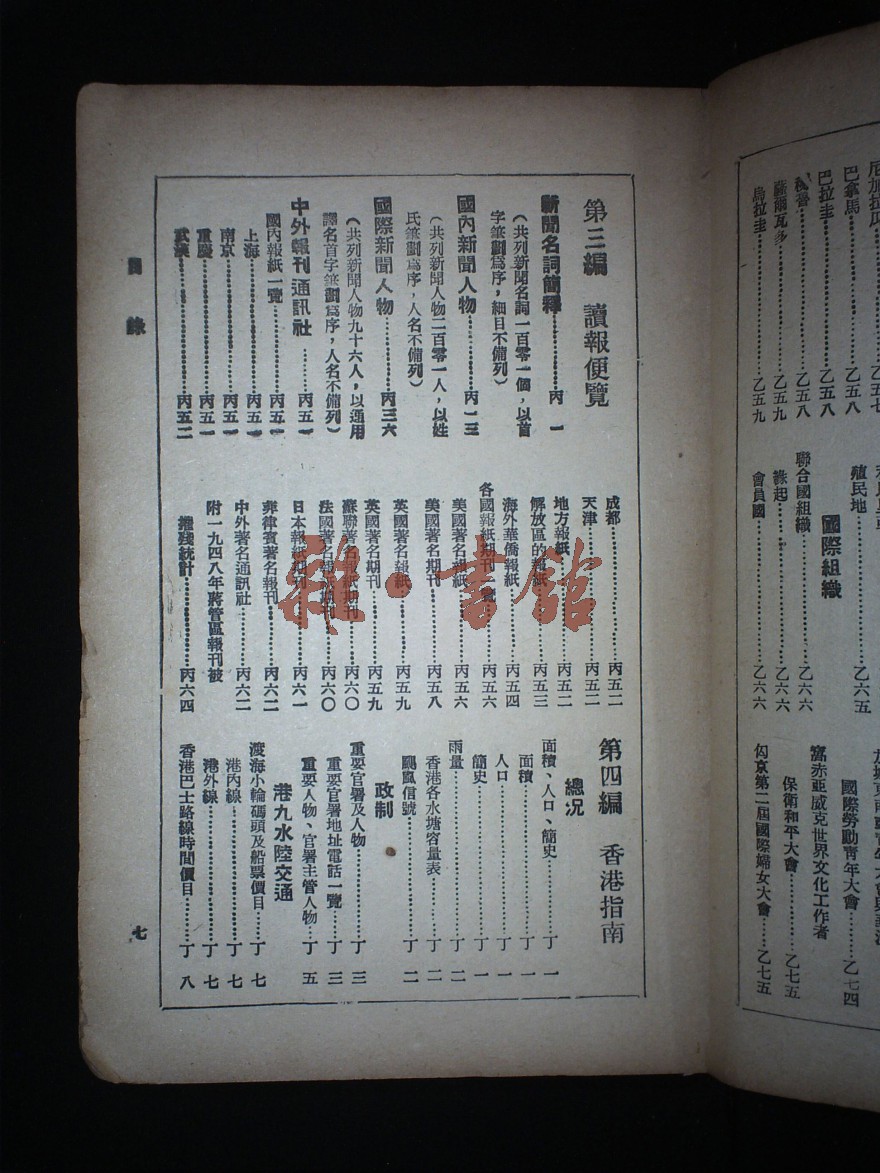 第三編　讀報便覽
新聞名詞簡釋…………丙　一
（共列新聞名詞一百零一個，以首
字筆劃爲序，細目不備列）
國內新聞人物…………丙一三
（共列新聞人物二百零一人，以姓
氏筆劃爲序，人名不備列）
國際新聞人物…………丙三六
（共列新聞人物九十六人，以通用
譯名首字筆劃爲序，人名不備列）
中外報刊通訊社…………丙五一
國內報紙一覽…………丙五一
上海…………丙五一
南京…………丙五一
重慶…………丙五一
武漢…………丙五二
成都…………丙五二
天津…………丙五二
地方報紙…………丙五二
解放區的報紙…………丙五三
海外華僑報紙…………丙五四
各國報紙期刊一覽…………丙五六
美國著名報紙…………丙五六
美國著名期刊…………丙五八
英國著名報紙…………丙五九
英國著名期刊…………丙五九
蘇聯著名報紙期刊…………丙六〇
法國著名報紙期刊…………丙六〇
日本報紙期刊…………丙六一
菲律賓著名報刊…………丙六二
中外著名通訊社…………丙六二
附一九四八年蔣管區報刊被
摧殘統計…………丙六四
第四編　香港指南
總況
面積、人口、簡史…………丁　一
面積…………丁　一
人口…………丁　一
簡史…………丁　一
雨量…………丁　二
香港各水塘容量表…………丁　二
颶風信號…………丁　二
政制
重要官署及人物…………丁　三
重要官署地址電話一覽…………丁　三
重要人物、官署主管人物…………丁　五
港九水陸交通
渡海小輪碼頭及船票價目…………丁　七
港內線…………丁　七
港外線…………丁　七
香港巴士路線時間價目…………丁　八
目　錄
七
巴拿馬…………乙五八
巴拉圭…………乙五八
秘魯…………乙五八
薩爾瓦多…………乙五九
烏拉圭…………乙五九
殖民地…………乙六五
國際組織
聯合國組織…………乙六六
緣起…………乙六六
會員國…………乙六六
國際勞動青年大會…………乙七四
富赤亞威克世界文化工作者
保衛和平大會…………乙七五
匈京第二屆國際婦女大會…………乙七五
雜·書館